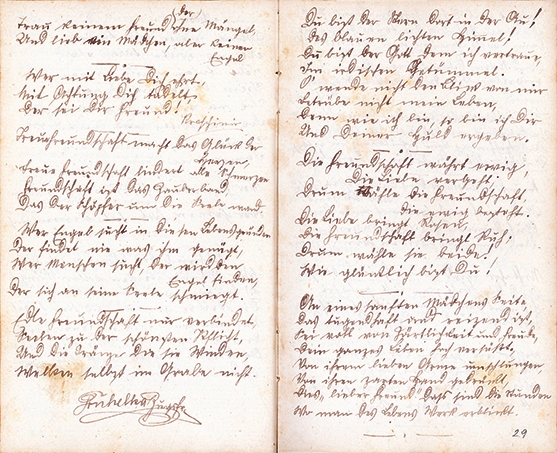 (der)
Trau keinem Freund ohne Mängel,
Und lieb ein Mädchen, aber keinen
Engel
Wer mit Liebe Dich ehrt,
Mit Achtung Dich tadelt,
Der sei Dir Freund!
Treue Freundschaft macht das Glück der
Herzen,
Treue Freundschaft lindert alle Schmerzen
Freundschaft ist das Zauberband
Das der Schöpfer um die Seele wand.
Wer Engel sucht in diesen Lebensgründen
Der findet nie was ihm genügt,
Wer Menschen sucht der wird den
Engel finden,
Der sich an seine Seele schmiegt.
Edle Freundschaft nur verbindet,
Seelen zu der schönsten Pflicht,
Und die Kränze die sie winden,
Welken selbst im Grabe nicht.
Du bist der Stern dort in der Au!
Des blauen lichten Himmel!
Du bist der Gott dem ich vertraue,
Im irdischen Getümmel.
O wende nicht den Blick von mir
Betrübe nicht mein Leben,
Denn wie ich bin, so bin ich Dir
Und Deiner Huld ergeben.
Die Freundschaft währt ewig,
Die Liebe vergeht.
Drum wähle die Freundschaft,
die ewig besteht.
Die Liebe bringt Rosen,
Die Freundschaft bringt Ruh;
Drum wähle sie beide!
Wie glücklich bist Du!
An eines sanften Mädchens Seite
Das tugendhaft und reizend ist,
Sei voll von Zärtlichkeit und Freude,
Dein ganzes Leben Dir versüßt,
Von ihrem lieben Arme umschlungen,
Von ihrer zarten Hand gedrückt,
Dies, lieber Freund! Dass sind die Stunden
Wo man des Lebens Werth erblickt.
29